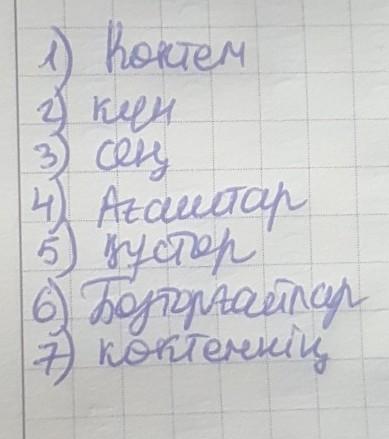 1) Көктем
2) күн
3) сең
4) Ағаштар
5) құстар
6) Бозторғайлар
7) көктемнің